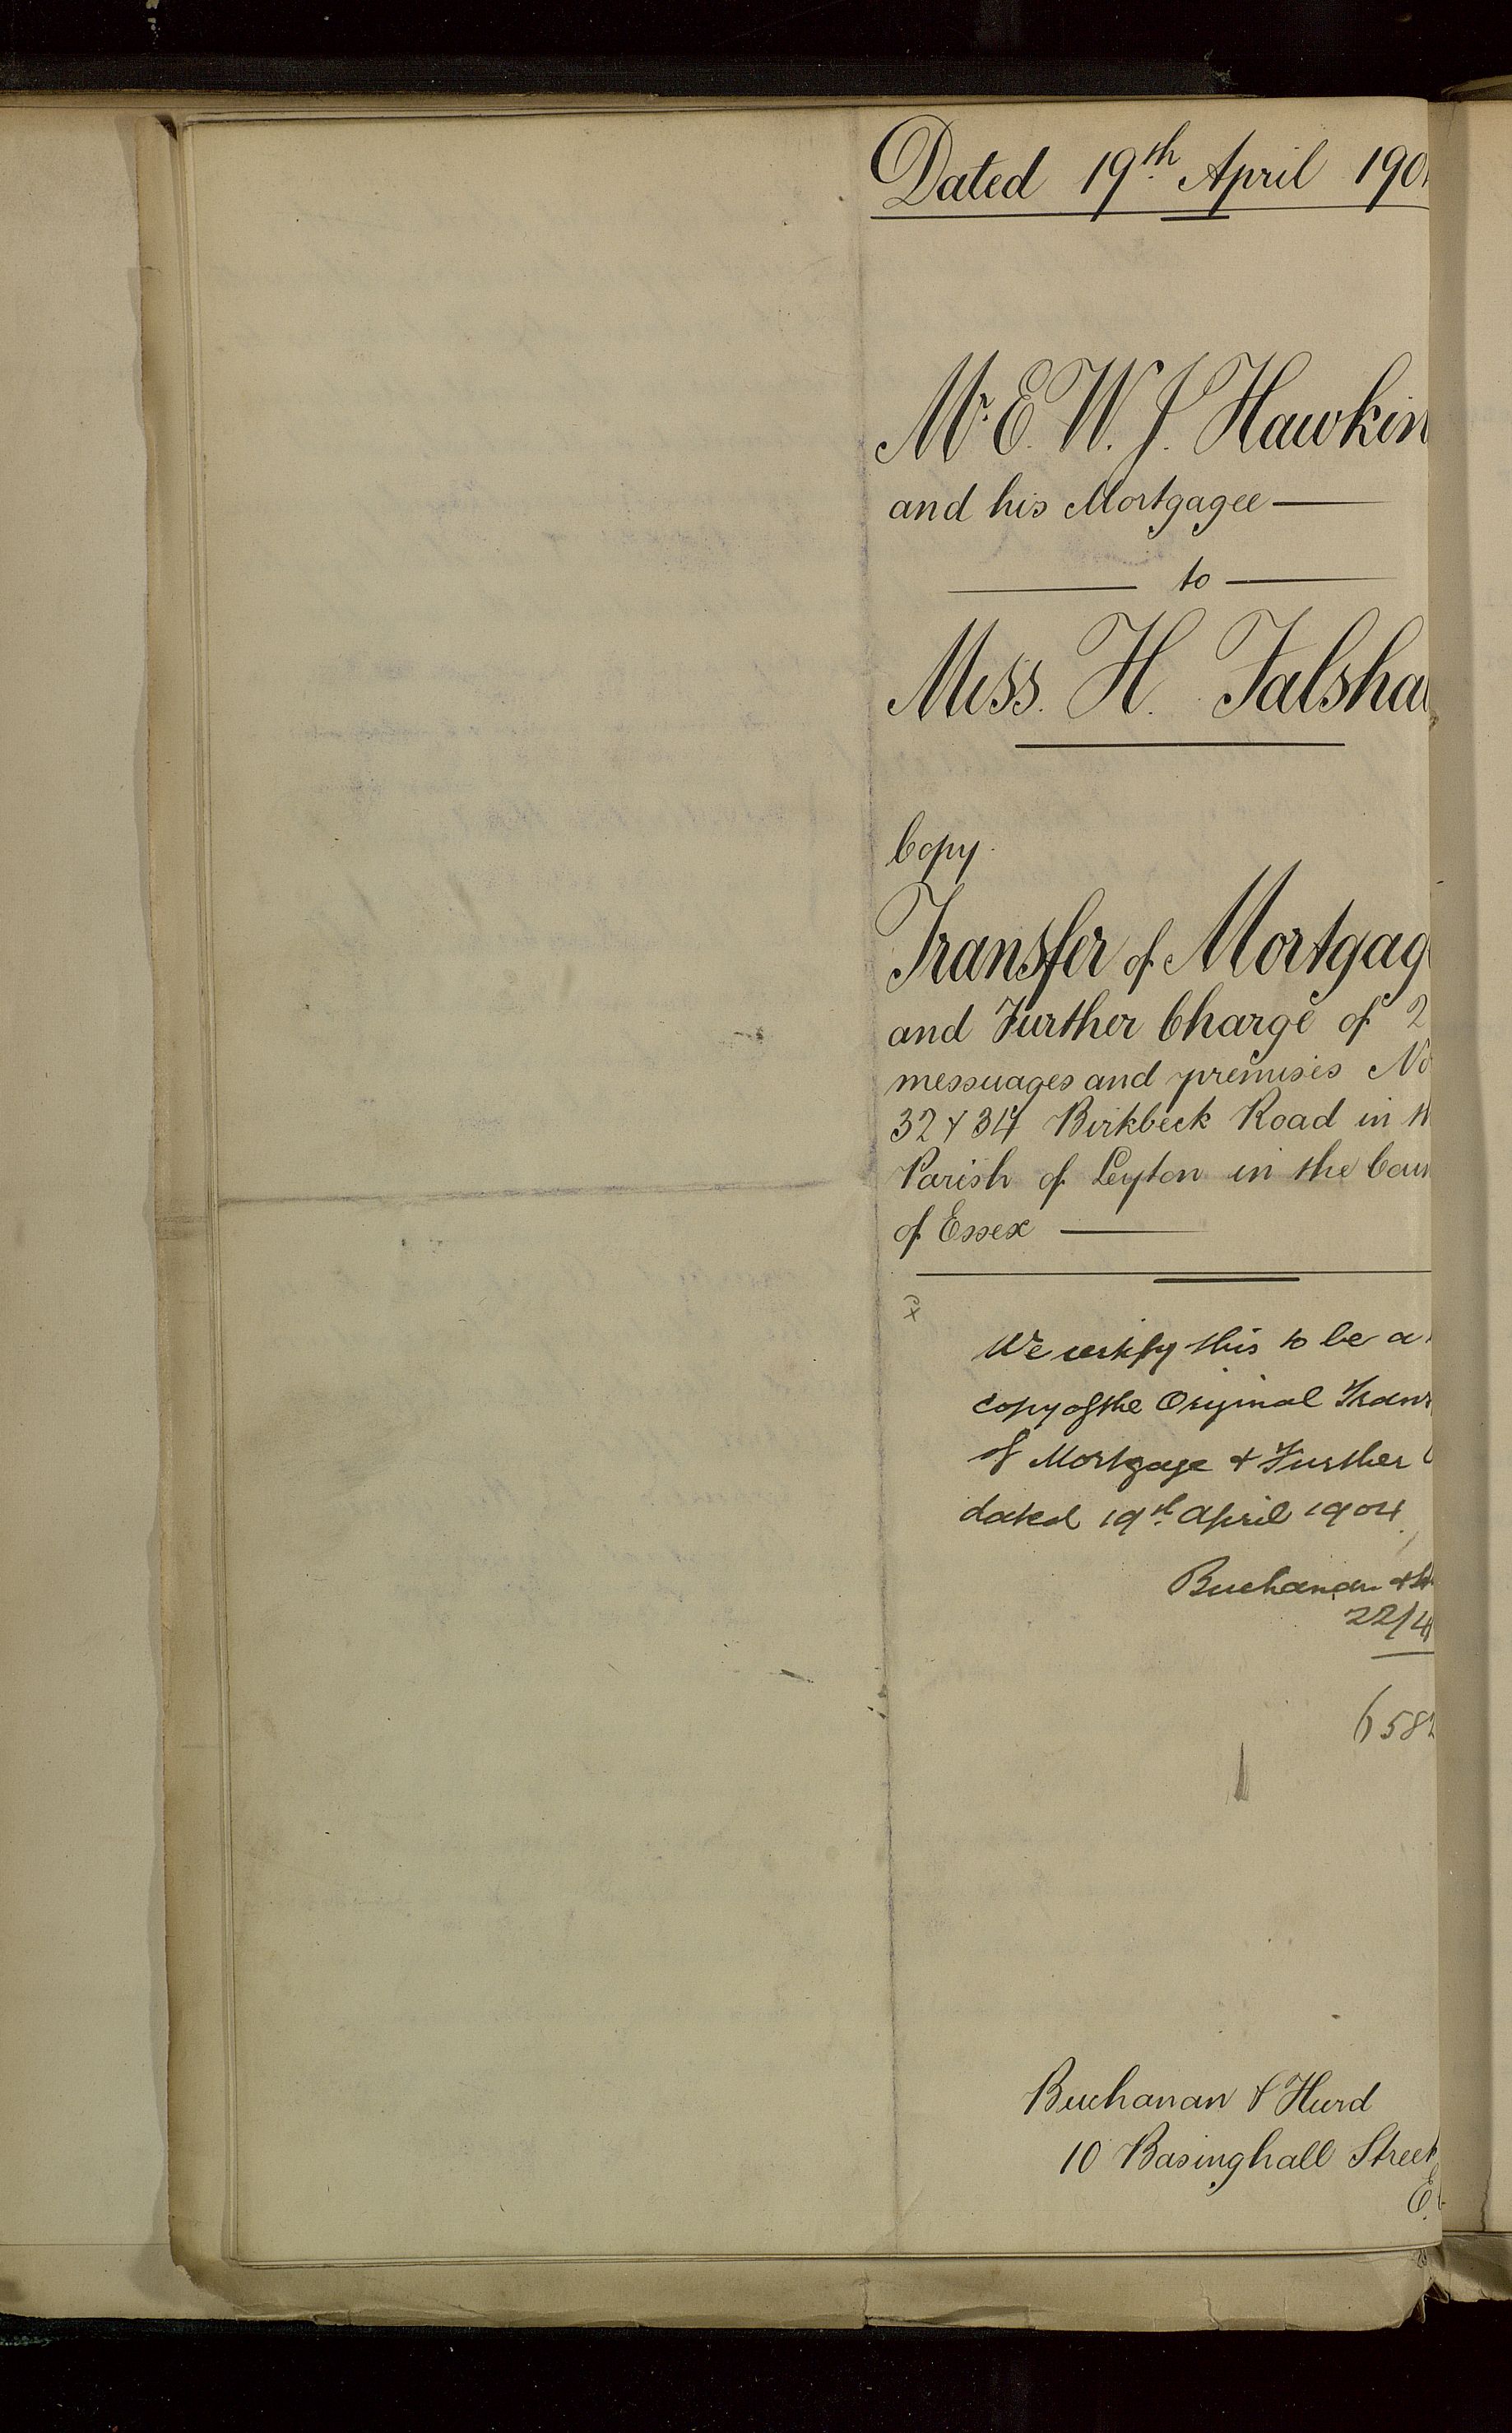 Dated 19th April 190
Mr. E. W. J. Hawkin
and his Mortgagee —
— to —
Miss. H. Falsha
Copy.
Transfer of Mortgag
and Further Charge of 2
messuages and premises No
32 & 34 Birkbeck Road in th
Parish of Leyton in the Coun
of Essex —
We certify this to be a
copy of the Original Trans
of Mortgage & Further C
dated 19th April 1904
Buchanan & H
22/4
658
Buchanan & Hurd
10 Basinghall Street
E.